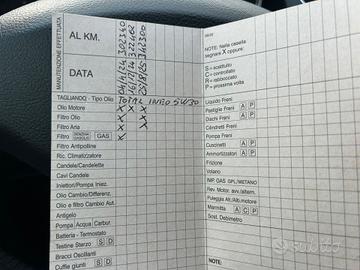 MANUTENZIONE EFFETTUATA
AL KM.
302340
322462
342300
DATA
04/4/24
16/12/24
TAGLIANDO - Tipo Olio TOTAL INEO 5W30
Olio Motore X X X
Filtro Olio X X
Filtro Aria X X
Filtro BENZINA GASOLIO GAS X
Filtro Antipolline
Ric. Climatizzatore
Candele/Candelette
Cavi Candele
Iniettori/Pompa Iniez.
Olio Cambio/Differenz.
Olio e filtro Cambio Aut.
Antigelo
Pompa Acqua Carbur.
Batteria - Termostato
Testine Sterzo S D
Bracci Oscillanti
Cuffie giunti S D
NOTE: Nella casella
segnare X oppure:
S = sostituito
C = controllato
R = rabboccato
P = prossima volta
Liquido Freni
Pastiglie Freni A P
Dischi Freni A P
Cilindretti Freni
Pompa Freni
Cuscinetti A P
Ammortizzatori A P
Frizione
Volano
IMP. GAS GPL/METANO
Rev. Motor. avv./altern.
Puleggia Alt./Albero Mot.
Marmitta A C P
Sost. Debimetro
NOTE:
subito.it